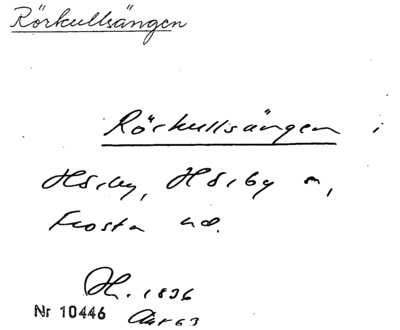 Rörkullsängen
Rörkullsängen i
Hörby, Hörby sn,
Frosta hd.
H. 1836
Nr 10446